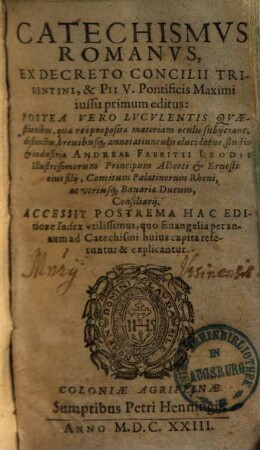 CATECHISMVS
ROMANVS,
EX DECRETO CONCILII TRI-
DENTINI, & PII V. Pontificis Maximi
iussu primum editus:
POSTEA VERO LVCVLENTIS QVÆ-
stionibus, quæ rei propositæ materiam oculis subijciant,
distinctus, breuibusq, annotatiunculis elucidatus, studio
& industria ANDREÆ FABRITII LEODII
Illustrissimorum Principum Alberti & Ernesti
eius filij, Comitum Palatinorum Rheni,
ac vtriusq, Bauariæ Ducum,
Consiliarij.
ACCESSIT POSTREMA HAC EDI-
tione Index vtilissimus, quo Euangelia per an-
num ad Catechismi huius capita refe-
runtur & explicantur.
IHS
BIBLIOTHEK
IN
AUGSBURG
COLONIÆ AGRIPPINÆ
Sumptibus Petri Henningij
ANNO M.D.C.XXIII.